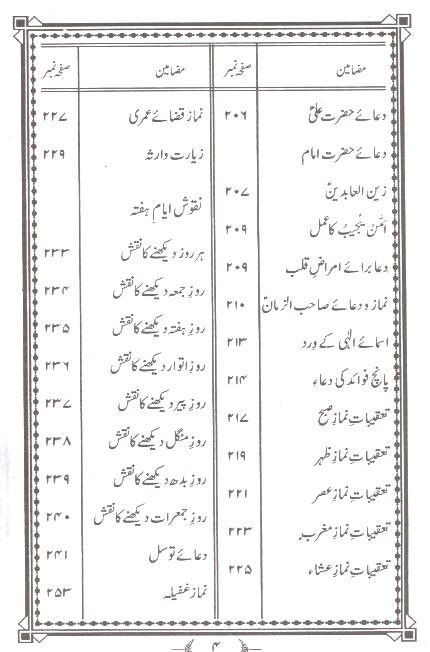 مضامین صفحہ نمبر
دعائے حضرت علیؑ ۲۰۶
دعائے حضرت امام
زین العابدینؑ ۲۰۷
اَمَّنْ یُّجِیْبُ کا عمل ۲۰۹
دعا برائے امراضِ قلب ۲۰۹
نماز و دعائے صاحب الزمانؑ ۲۱۰
اسمائے الٰہی کے وِرد ۲۱۳
پانچ فوائد کی دعاء ۲۱۴
تعقیباتِ نمازِ صبح ۲۱۷
تعقیباتِ نمازِ ظہر ۲۱۹
تعقیباتِ نمازِ عصر ۲۲۱
تعقیباتِ نمازِ مغرب ۲۲۳
تعقیباتِ نمازِ عشاء ۲۲۵
مضامین صفحہ نمبر
نماز قضائے عمری ۲۲۷
زیارت وارثہ ۲۲۹
نقوش ایامِ ہفتہ
ہر روز دیکھنے کا نقش ۲۳۳
روزِ جمعہ دیکھنے کا نقش ۲۳۴
روزِ ہفتہ دیکھنے کا نقش ۲۳۵
روزِ اتوار دیکھنے کا نقش ۲۳۶
روزِ پیر دیکھنے کا نقش ۲۳۷
روزِ منگل دیکھنے کا نقش ۲۳۸
روزِ بدھ دیکھنے کا نقش ۲۳۹
روزِ جمعرات دیکھنے کا نقش ۲۴۰
دعائے توسل ۲۴۱
نماز غفیلہ ۲۵۳
۴